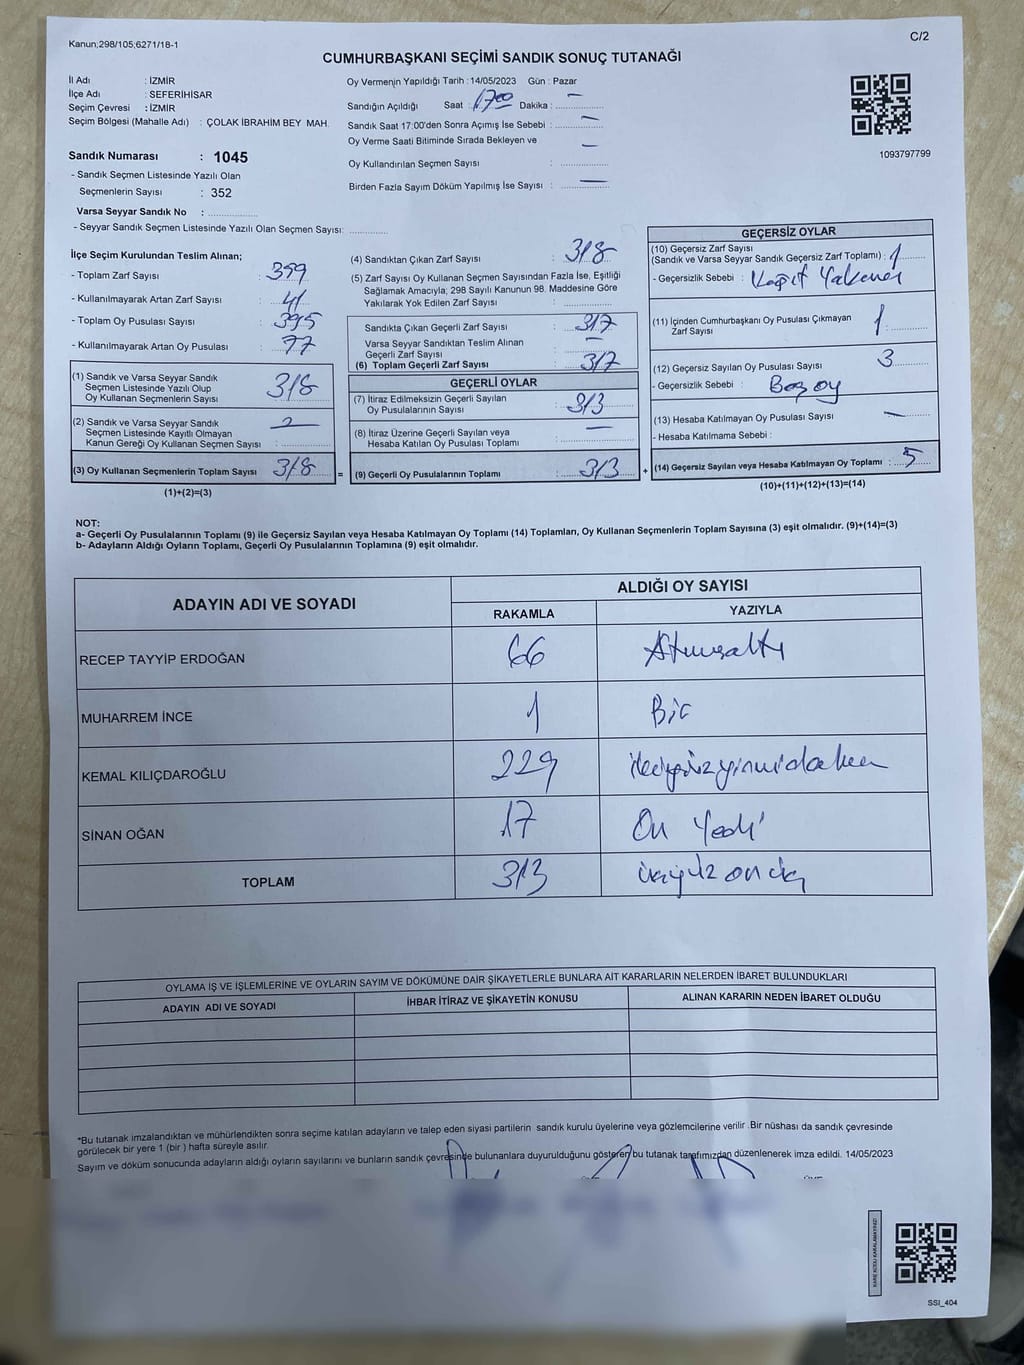 Kanun;298/105;6271/18-1
C/2
CUMHURBAŞKANI SEÇİMİ SANDIK SONUÇ TUTANAĞI
İl Adı : İZMİR
İlçe Adı : SEFERİHİSAR
Seçim Çevresi : İZMİR
Seçim Bölgesi (Mahalle Adı) : ÇOLAK İBRAHİM BEY MAH.
Sandık Numarası : 1045
- Sandık Seçmen Listesinde Yazılı Olan
Seçmenlerin Sayısı : 352
Varsa Seyyar Sandık No :
- Seyyar Sandık Seçmen Listesinde Yazılı Olan Seçmen Sayısı:
Oy Vermenin Yapıldığı Tarih : 14/05/2023 Gün : Pazar
Sandığın Açıldığı Saat : 1700 Dakika : —
Sandık Saat 17:00'den Sonra Açımış İse Sebebi : —
Oy Verme Saati Bitiminde Sırada Bekleyen ve
Oy Kullandırılan Seçmen Sayısı : —
Birden Fazla Sayım Döküm Yapılmış İse Sayısı : —
1093797799
İlçe Seçim Kurulundan Teslim Alınan;
- Toplam Zarf Sayısı : 359
- Kullanılmayarak Artan Zarf Sayısı : 41
- Toplam Oy Pusulası Sayısı : 395
- Kullanılmayarak Artan Oy Pusulası : 77
(1) Sandık ve Varsa Seyyar Sandık
Seçmen Listesinde Yazılı Olup
Oy Kullanan Seçmenlerin Sayısı : 318
(2) Sandık ve Varsa Seyyar Sandık
Seçmen Listesinde Kayıtlı Olmayan
Kanun Gereği Oy Kullanan Seçmen Sayısı :
(3) Oy Kullanan Seçmenlerin Toplam Sayısı : 318
(1)+(2)=(3)
(4) Sandıktan Çıkan Zarf Sayısı : 318
(5) Zarf Sayısı Oy Kullanan Seçmen Sayısından Fazla İse, Eşitliği
Sağlamak Amacıyla; 298 Sayılı Kanunun 98. Maddesine Göre
Yakılarak Yok Edilen Zarf Sayısı :
Sandıkta Çıkan Geçerli Zarf Sayısı : 317
Varsa Seyyar Sandıktan Teslim Alınan
Geçerli Zarf Sayısı : —
(6) Toplam Geçerli Zarf Sayısı : 317
GEÇERLİ OYLAR
(7) İtiraz Edilmeksizin Geçerli Sayılan
Oy Pusulalarının Sayısı : 313
(8) İtiraz Üzerine Geçerli Sayılan veya
Hesaba Katılan Oy Pusulası Toplamı : —
= (9) Geçerli Oy Pusulalarının Toplamı : 313 +
GEÇERSİZ OYLAR
(10) Geçersiz Zarf Sayısı
(Sandık ve Varsa Seyyar Sandık Geçersiz Zarf Toplamı) : 1
- Geçersizlik Sebebi : Kağıt
(11) İçinden Cumhurbaşkanı Oy Pusulası Çıkmayan
Zarf Sayısı : 1
(12) Geçersiz Sayılan Oy Pusulası Sayısı : 3
- Geçersizlik Sebebi : Boş oy
(13) Hesaba Katılmayan Oy Pusulası Sayısı : —
- Hesaba Katılmama Sebebi :
(14) Geçersiz Sayılan veya Hesaba Katılmayan Oy Toplamı : 5
(10)+(11)+(12)+(13)=(14)
NOT:
a- Geçerli Oy Pusulalarının Toplamı (9) ile Geçersiz Sayılan veya Hesaba Katılmayan Oy Toplamı (14) Toplamları, Oy Kullanan Seçmenlerin Toplam Sayısına (3) eşit olmalıdır. (9)+(14)=(3)
b- Adayların Aldığı Oyların Toplamı, Geçerli Oy Pusulalarının Toplamına (9) eşit olmalıdır.
ADAYIN ADI VE SOYADI ALDIĞI OY SAYISI
RAKAMLA YAZIYLA
RECEP TAYYİP ERDOĞAN 66 Atmışaltı
MUHARREM İNCE 1 Bir
KEMAL KILIÇDAROĞLU 229 ikiyüzyirmidokuz
SİNAN OĞAN 17 On Yedi
TOPLAM 313 üçyüz onüç
OYLAMA İŞ VE İŞLEMLERİNE VE OYLARIN SAYIM VE DÖKÜMÜNE DAİR ŞİKAYETLERLE BUNLARA AİT KARARLARIN NELERDEN İBARET BULUNDUKLARI
ADAYIN ADI VE SOYADI İHBAR İTİRAZ VE ŞİKAYETİN KONUSU ALINAN KARARIN NEDEN İBARET OLDUĞU
*Bu tutanak imzalandıktan ve mühürlendikten sonra seçime katılan adayların ve talep eden siyasi partilerin sandık kurulu üyelerine veya gözlemcilerine verilir .Bir nüshası da sandık çevresinde
görülecek bir yere 1 (bir ) hafta süreyle asılır.
Sayım ve döküm sonucunda adayların aldığı oyların sayılarını ve bunların sandık çevresinde bulunanlara duyurulduğunu gösteren bu tutanak tarafımızdan düzenlenerek imza edildi. 14/05/2023
KARE KODU KARALAMAYINIZ!
SSI_404